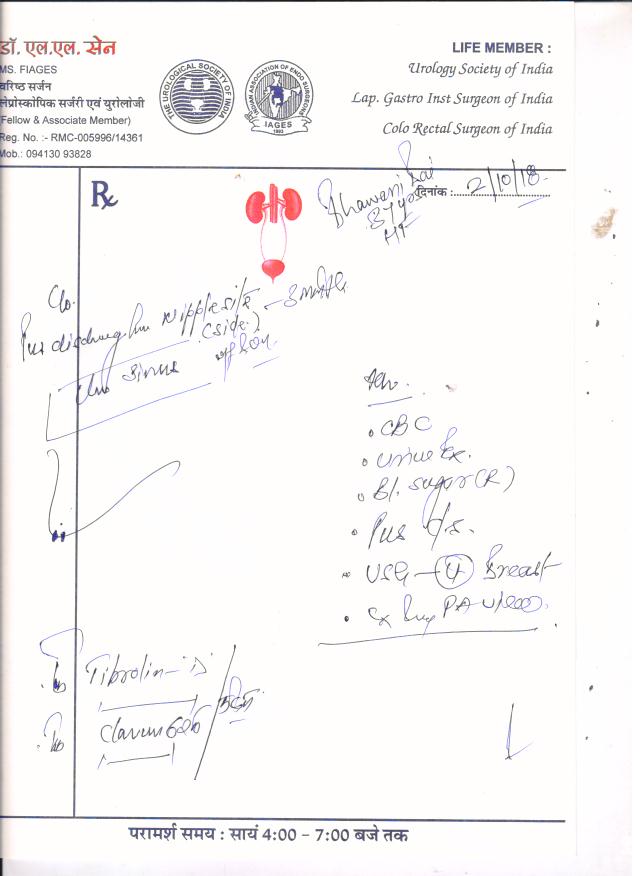 डॉ. एल.एल. सेन
MS. FIAGES
वरिष्ठ सर्जन
लेप्रोस्कोपिक सर्जरी एवं युरोलोजी
(Fellow & Associate Member)
Reg. No. :- RMC-005996/14361
Mob.: 094130 93828
THE UROLOGICAL SOCIETY OF INDIA
INDIAN ASSOCIATION OF ENDO SURGEONS
IAGES
1993
LIFE MEMBER :
Urology Society of India
Lap. Gastro Inst Surgeon of India
Colo Rectal Surgeon of India
Rx
Bhawani Bai
दिनांक : 2/10/18
C/o.
Pus discharge nipple site - 3 month
(side)
sinus
Adv.
• CBC
• Urine Ex.
• Bl. Sugar (R)
• Pus c/s.
• USG - Breast
• PA view
Tibrolin-D
Clavum 625
परामर्श समय : सायं 4:00 - 7:00 बजे तक